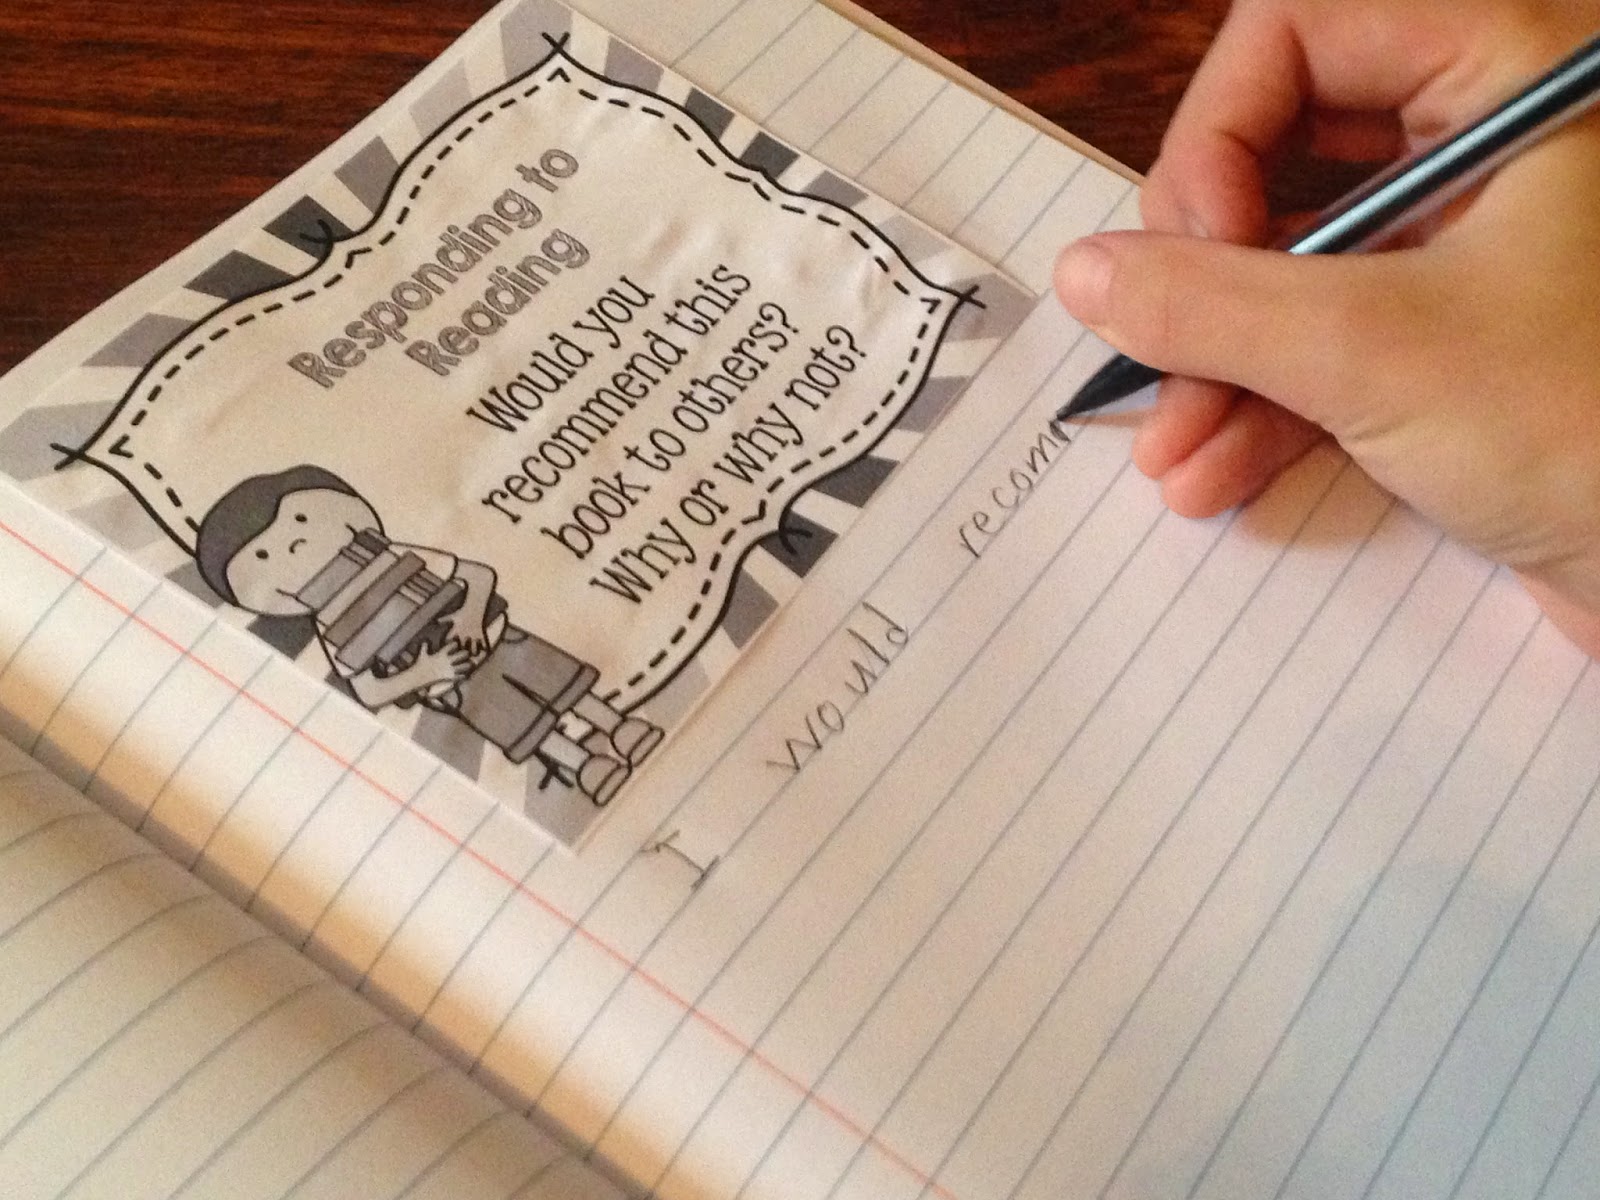 Responding to
Reading
Would you
recommend this
book to others?
Why or why not?
I would recom